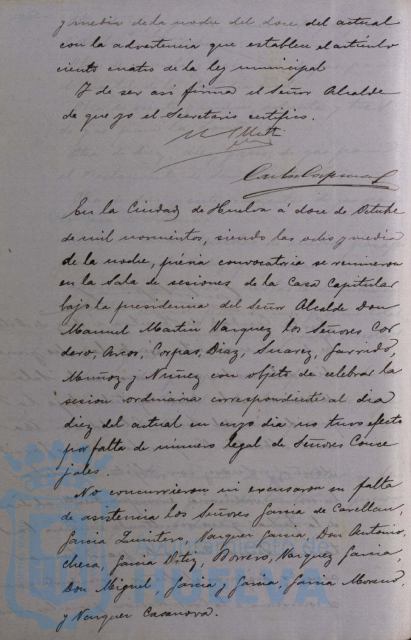 y media de la noche del doce del actual
con la advertencia que establece el artículo
ciento cuatro de la ley municipal
Y de ser asi firma el Señor Alcalde
de que yo el Secretario certifico.
En la Ciudad de Huelva á doce de Octubre
de mil novecientos, siendo las ocho y media
de la noche, prévia convocatoria se reunieron
en la Sala de sesiones de la Casa Capitular
bajo la presidencia del Señor Alcalde Don
Manuel Martin Vazquez los Señores Cor
dero, Arcos, Corpas, Diaz, Suarez, Garrido,
Muñoz y Nuñez con objeto de celebrar la
sesion ordinaria correspondiente al dia
diez del actual en cuyo dia no tuvo efecto
por falta de número legal de Señores Conce
jales.
No concurrieron ni excusaron su falta
de asistencia los Señores Garcia de Cavellan,
Garcia Quintero, Vazquez Garcia, Don Antonio,
checa, Garcia Ortiz, Borrero, Vazquez Garcia,
Don Miguel, Garcia y Garcia, Garcia Moreno,
y Vazquez Casanova.
HUELVA